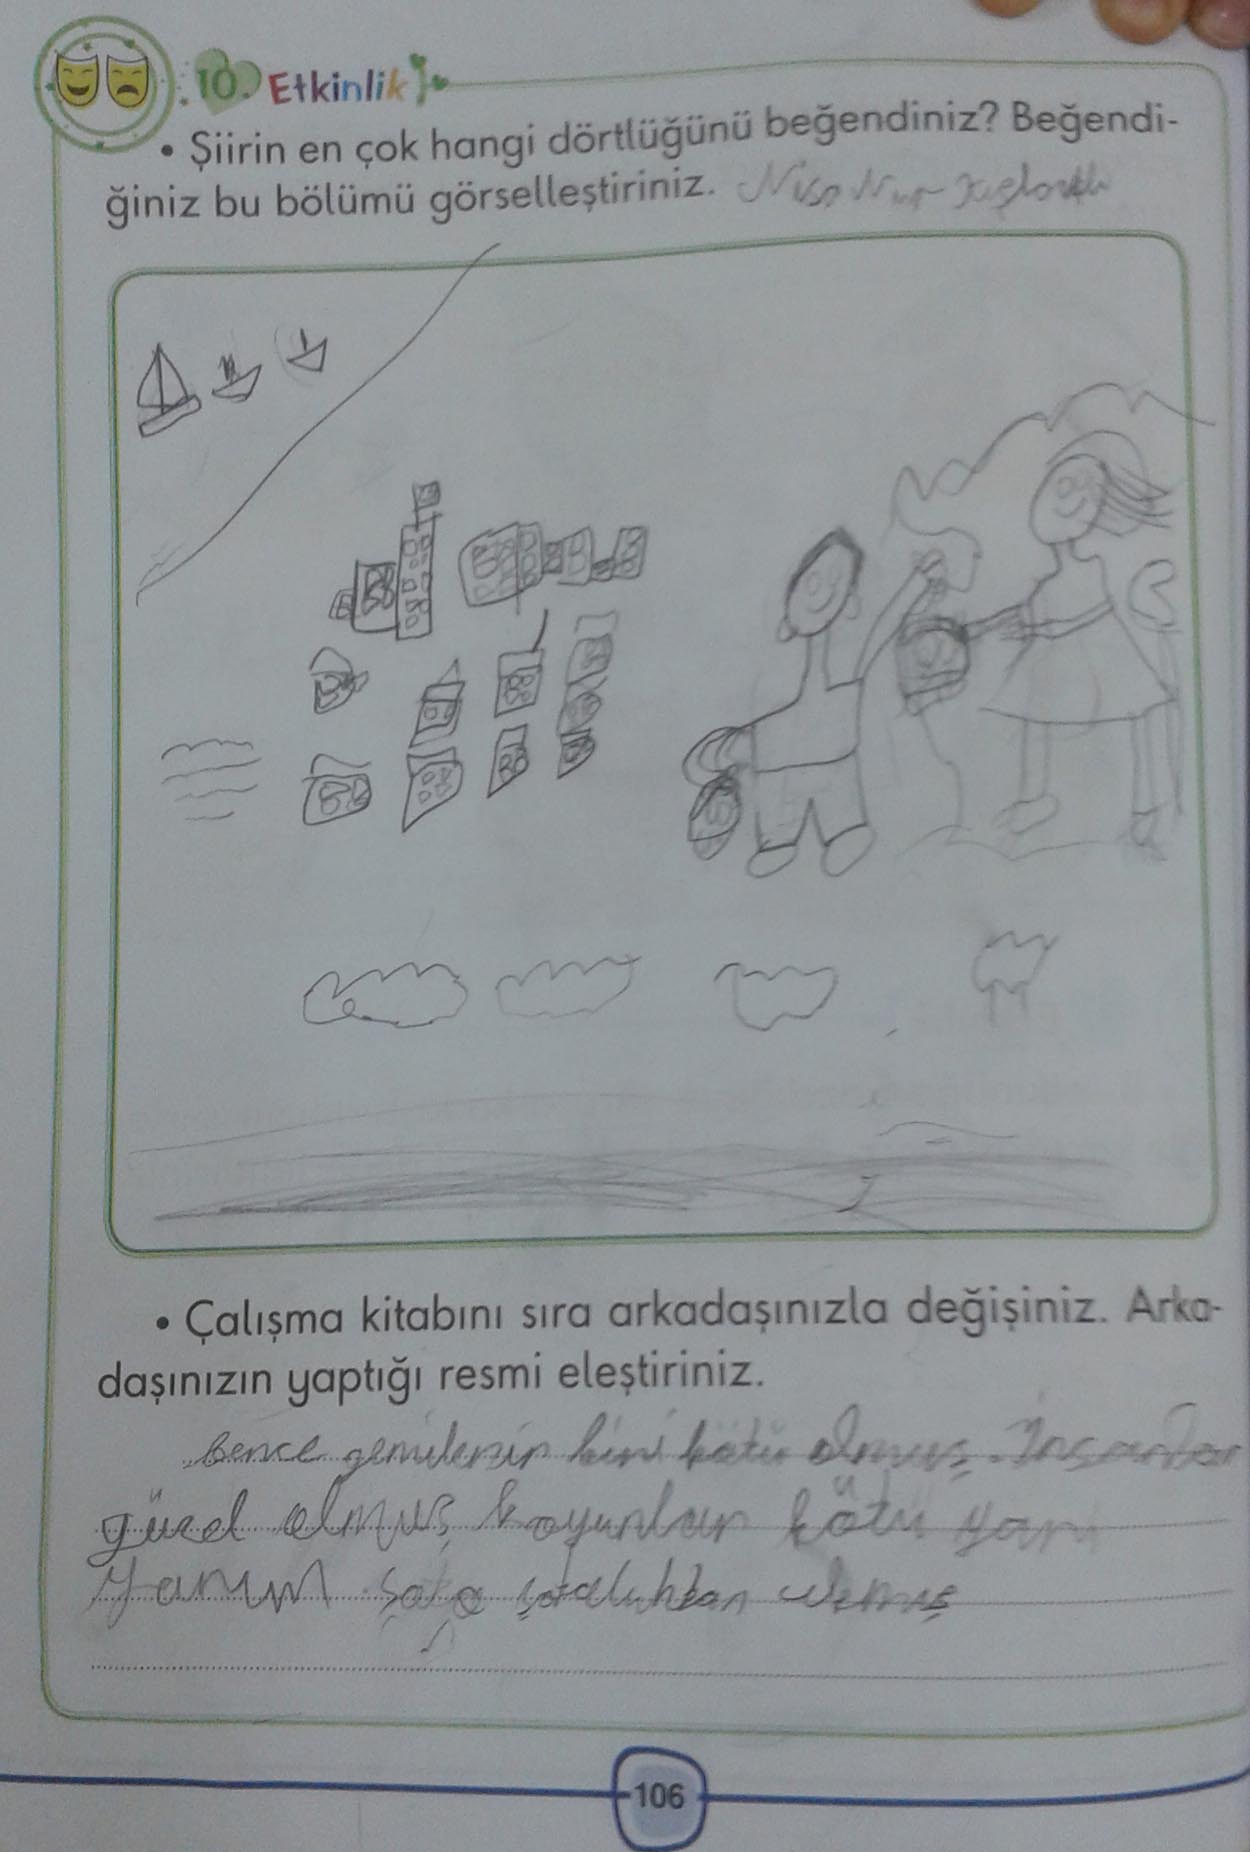 10. Etkinlik
• Şiirin en çok hangi dörtlüğünü beğendiniz? Beğendi-
ğiniz bu bölümü görselleştiriniz. Nisa Nur
• Çalışma kitabını sıra arkadaşınızla değişiniz. Arka-
daşınızın yaptığı resmi eleştiriniz.
bence gemilerin biri kötü olmuş. İnsanlar
güzel olmuş koyunlar kötü yarı
yarım olmuş
106